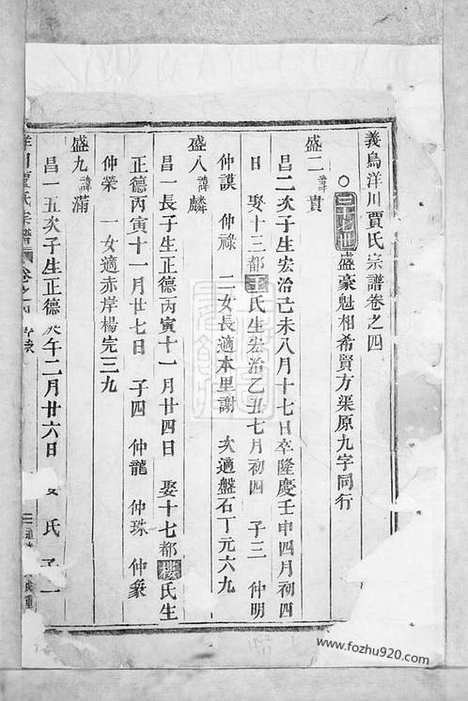 義烏洋川賈氏宗譜卷之四
○三十世盛豪魁相希賢方渠原九字同行
盛二諱貴
昌二次子生宏治己未八月十七日卒隆慶壬申四月初四
日 娶十三都王氏生宏治乙丑七月初四 子三 仲明
仲謨 仲祿 二女長適本里謝 次適盤石丁元六九
盛八諱麟
昌一長子生正德丙寅十一月廿四日 娶十七都樓氏生
正德丙寅十一月廿七日 子四 仲龍 仲珠 仲象
仲榮 一女適赤岸楊完三九
盛九諱滿
昌一五次子生正德 午二月廿六日 氏 子一
洋川賈氏宗譜 卷之四
www.fozhu920.com